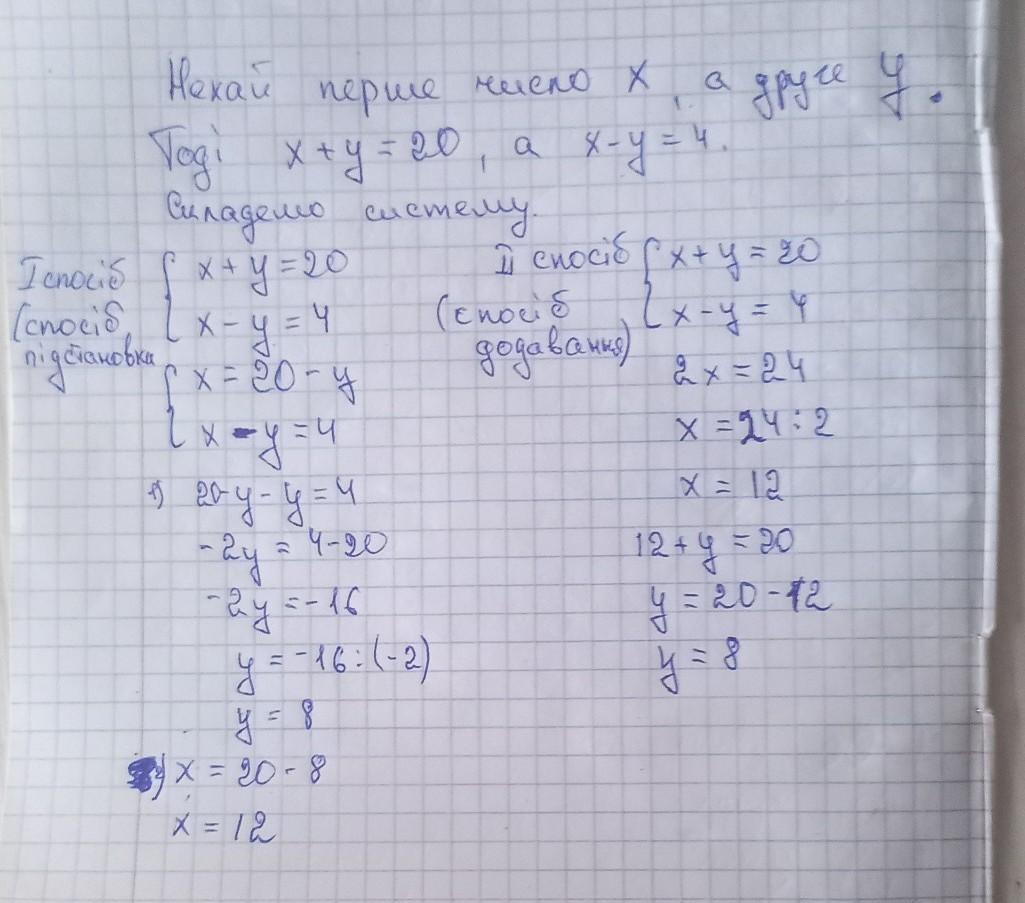 Нехай перше число x, а друге y.
Тоді x + y = 20, а x - y = 4.
Складемо систему.
I спосіб
(спосіб
підстановка
x + y = 20
x - y = 4
x = 20 - y
x - y = 4
1) 20 - y - y = 4
-2y = 4 - 20
-2y = -16
y = -16 : (-2)
y = 8
2) x = 20 - 8
x = 12
II спосіб
(спосіб
додавання)
x + y = 20
x - y = 4
2x = 24
x = 24 : 2
x = 12
12 + y = 20
y = 20 - 12
y = 8